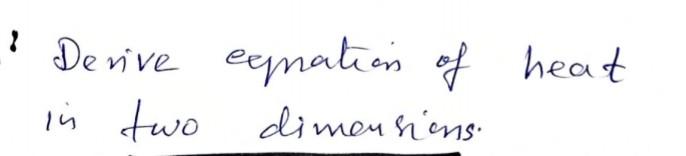 Derive equation of heat
in two dimensions.